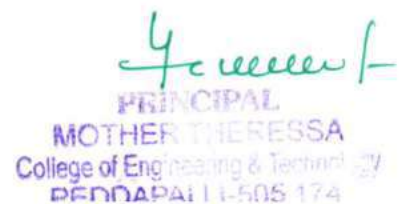 PRINCIPAL
MOTHER THERESSA
College of Engineering & Technology
PEDDAPALLI-505 174